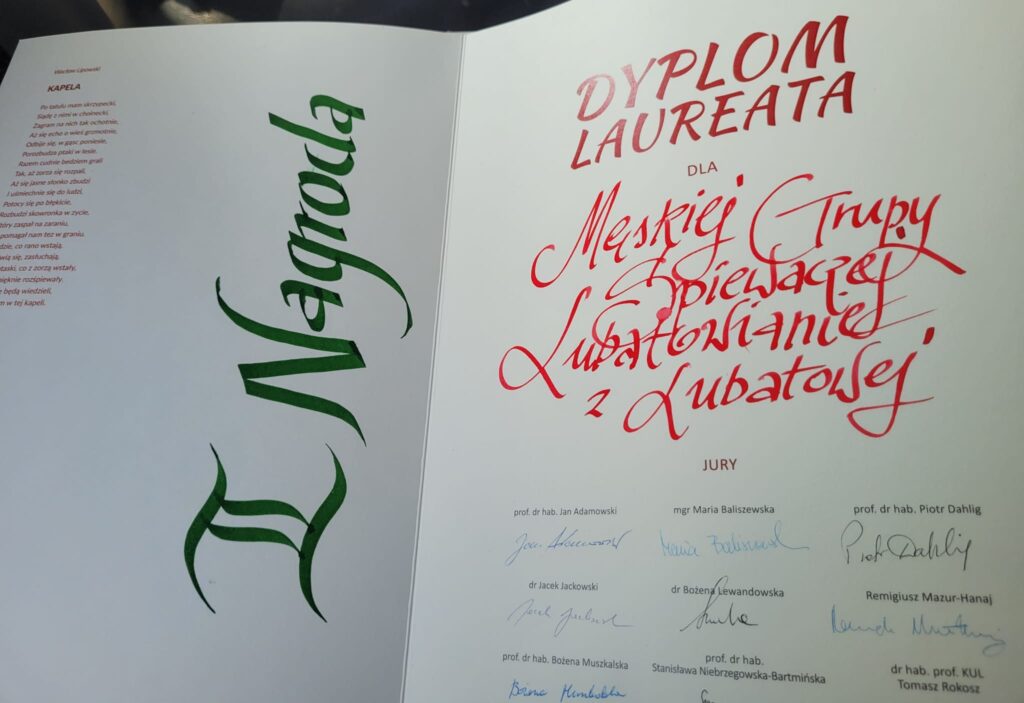 Wacław Lipowski
KAPELA
Po tatulu mam skrzypecki,
Siądę z nimi w choinecki,
Zagram na nich tak ochotnie,
Aż się echo o wieś gromotnie,
Odbije się, w gąsc poniesie,
Porozbudza ptaki w lesie.
Razem cudnie bedziem grali
Tak, aż zorza się rozpali,
Aż się jasne słonko zbudzi
I uśmiechnie się do ludzi,
Potocy się po błękicie,
Rozbudzi skowronka w zycie,
tóry zaspał na zaraniu,
pomagał nam tez w graniu.
dzie, co rano wstają,
wią się, zasłuchają,
taski, co z zorzą wstały,
ięknie rozśpiewały.
e będą wiedzieli,
m w tej kapeli.
II Nagroda
DYPLOM
LAUREATA
DLA
Męskiej Grupy
Śpiewaczej
Lubatowianie
z Lubatowej
JURY
prof. dr hab. Jan Adamowski
mgr Maria Baliszewska
prof. dr hab. Piotr Dahlig
Jan Adamowski
Maria Baliszewska
Piotr Dahlig
dr Jacek Jackowski
dr Bożena Lewandowska
Remigiusz Mazur-Hanaj
prof. dr hab. Bożena Muszkalska
prof. dr hab.
Stanisława Niebrzegowska-Bartmińska
dr hab. prof. KUL
Tomasz Rokosz
Bożena Muszkalska